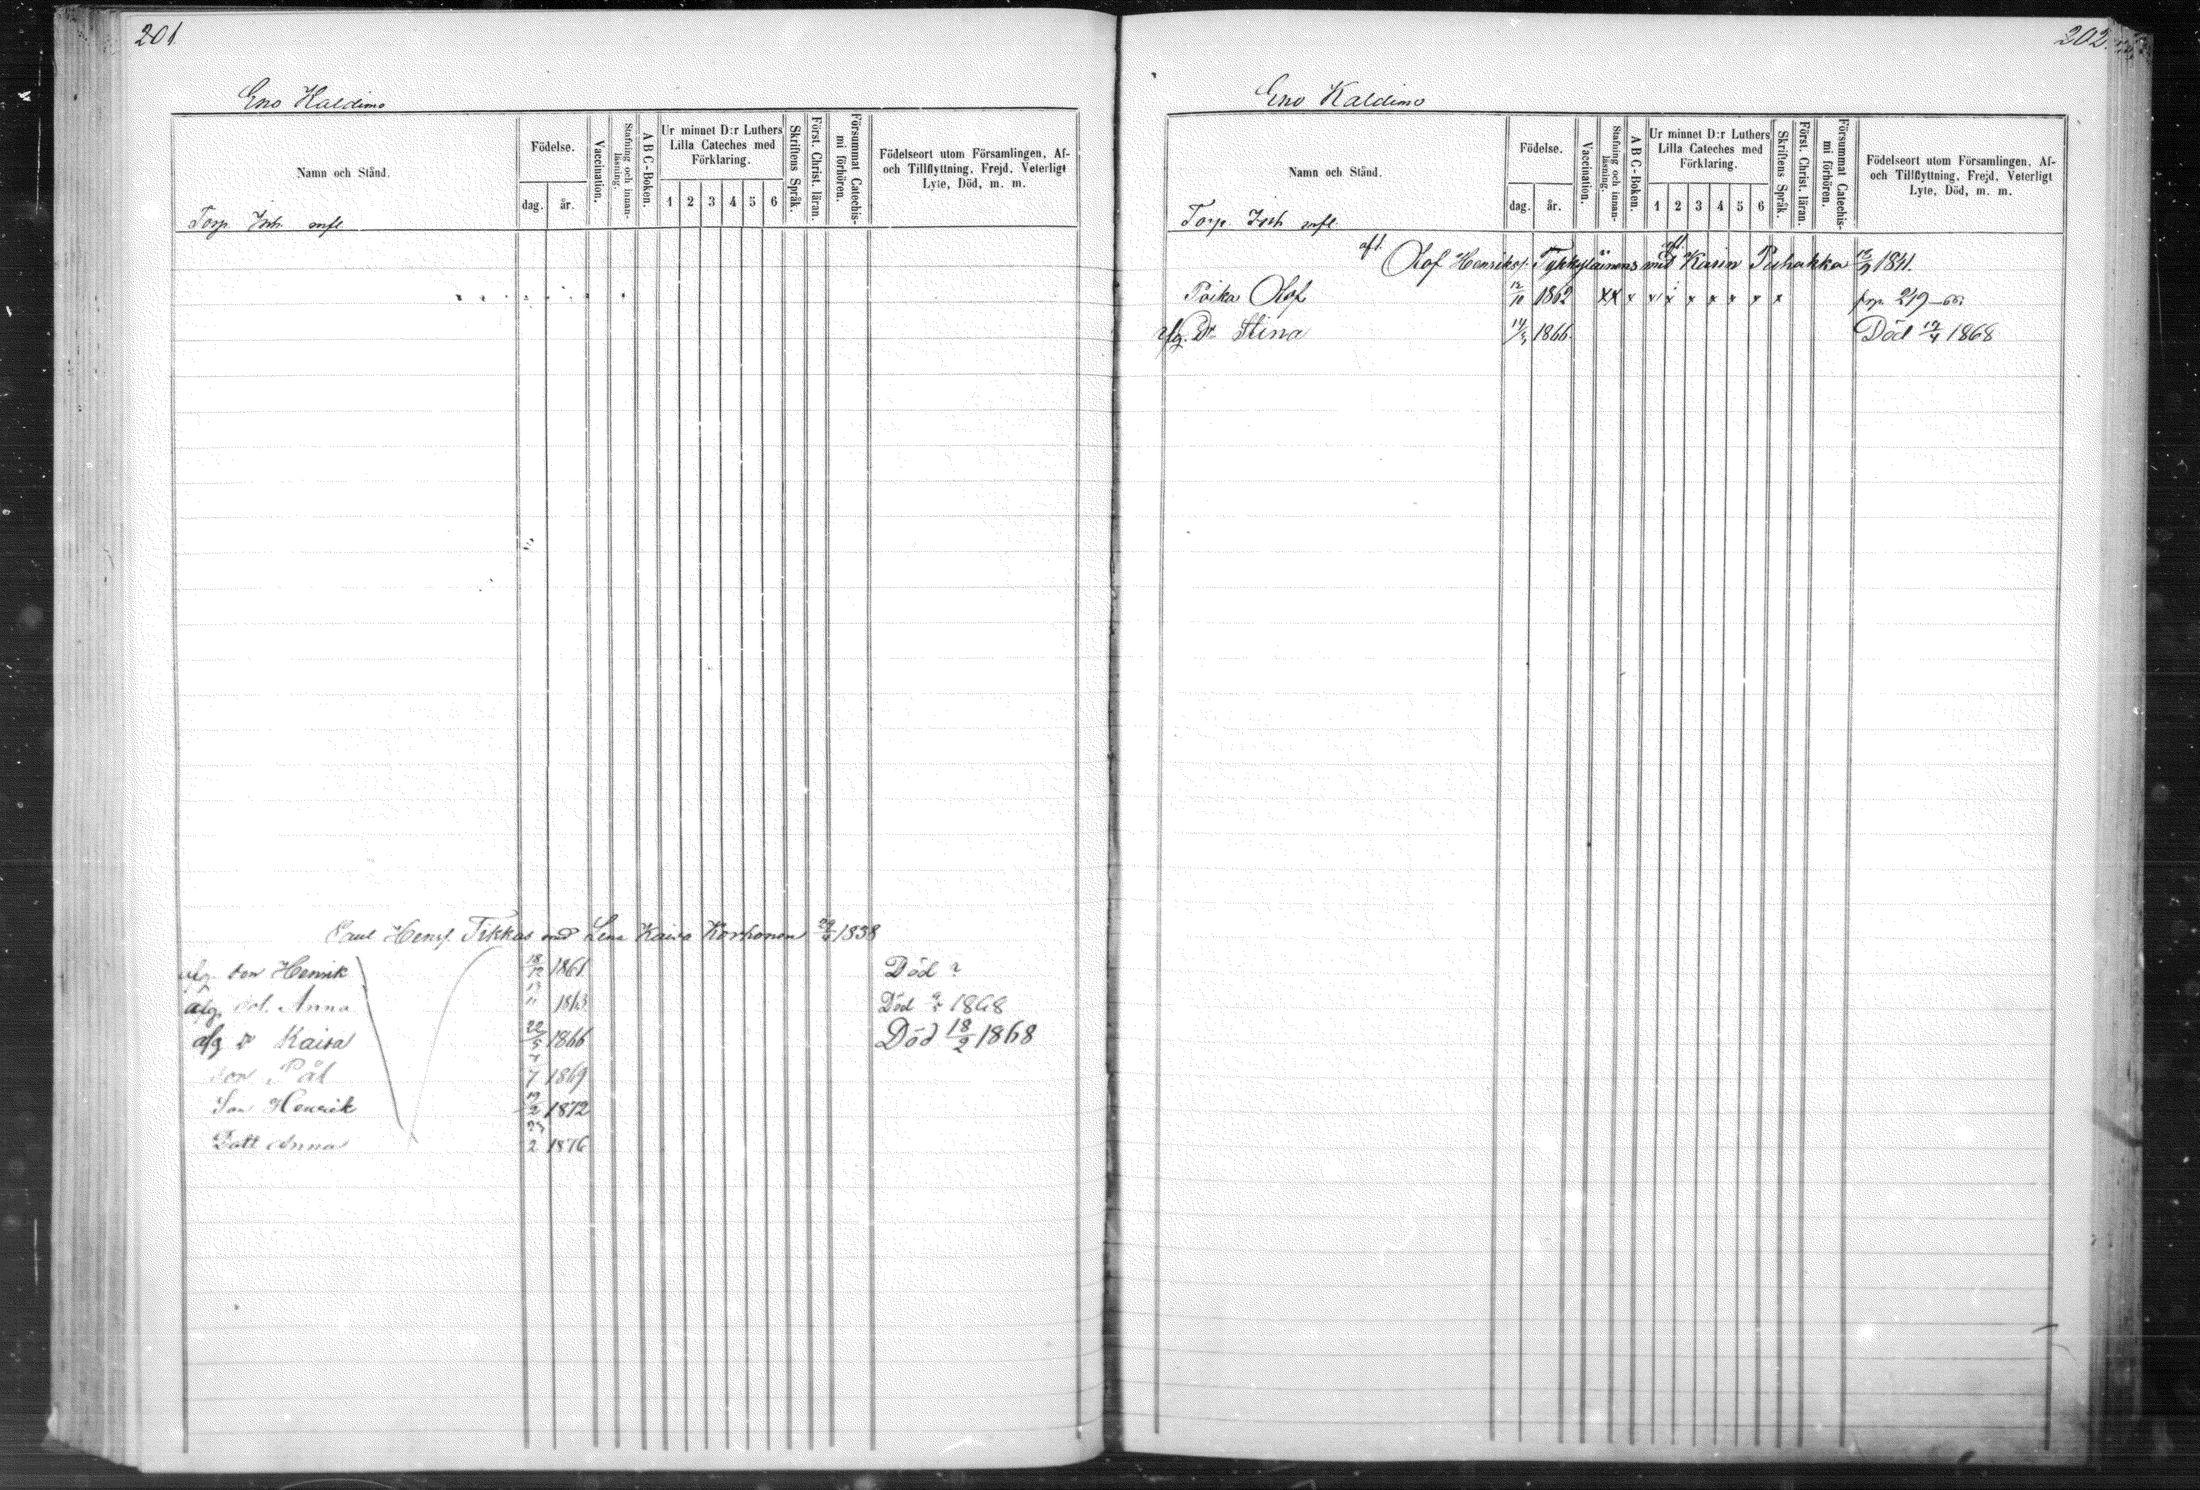 201
Eno Kaldimo
Namn och Stånd.
Födelse.
dag.
år.
Vaccination.
Stafning och innan-
läsning.
ABC-Boken.
Ur minnet D:r Luthers
Lilla Cateches med
Förklaring.
1 2 3 4 5 6
Skriftens Språk.
Först. Christ. läran.
Försummat Catechis-
mi förhören.
Födelseort utom Församlingen, Af-
och Tillflyttning, Frejd, Veterligt
Lyte, Död, m. m.
Torp. Inh. mfl
Paul Henrs. Tikkas med Lena Kaisa Korhonen 1838
afg. son Henrik 18/12 1861 Död ?
afg. dot. Anna 1863 Död 1868
afg Dr Kaisa 22/5 1866 Död 18/2 1868
son Pål 7 1869
Son Henrik 19/2 1872
Dott Anna 23/2 1876
202
Eno Kaldimo
Namn och Stånd.
Födelse.
dag.
år.
Vaccination.
Stafning och innan-
läsning.
ABC-Boken.
Ur minnet D:r Luthers
Lilla Cateches med
Förklaring.
1 2 3 4 5 6
Skriftens Språk.
Först. Christ. läran.
Försummat Catechis-
mi förhören.
Födelseort utom Församlingen, Af-
och Tillflyttning, Frejd, Veterligt
Lyte, Död, m. m.
Torp. Inh mfl.
afl. Olof Henriks. Tykkyläinens med afl. Karin Puhakka 1841.
Poika Olof 12/10 1862 x x x x x x x x x x x 219
afg. Dr Stina 1866. Död 12/4 1868